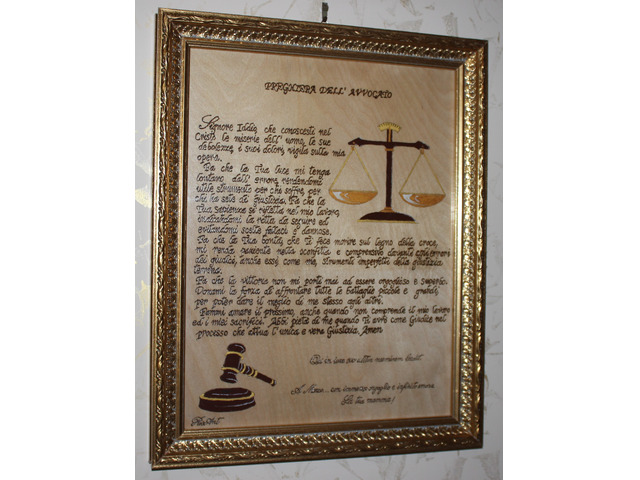 PREGHIERA DELL' AVVOCATO
Signore Iddio, che conoscesti nel
Cristo le miserie dell' uomo, le sue
debolezze, i suoi dolori, vigila sulla mia
opera.
Fa che la Tua luce mi tenga
lontano dall' errore, rendendomi
utile strumento per chi soffre, per
chi ha sete di giustizia. Fa che la
Tua Sapienza si rifletta nel mio lavoro,
indicandomi la rotta da seguire ed
evitandomi scelte fallaci e dannose.
Fa che la Tua bontà, che Ti fece morire sul legno della croce,
mi renda paziente nella sconfitta e comprensivo davanti
dei giudici, anche essi, come me, strumenti imperfetti della giustizia
terrena.
Fa che la vittoria non mi porti mai ad essere orgoglioso e superbo.
Donami la forza di affrontare tutte le battaglie piccole e grandi,
per poter dare il meglio di me stesso agli altri.
Fammi amare il prossimo, anche quando non comprende il mio lavoro
ed i miei sacrifici. Abbi pietà di me quando Ti avrò come Giudice nel
processo che attua l' unica e vera Giustizia. Amen
Qui in iure suo utitur neminem laedit.
A ... con immenso orgoglio e infinito amore
la tua mamma!